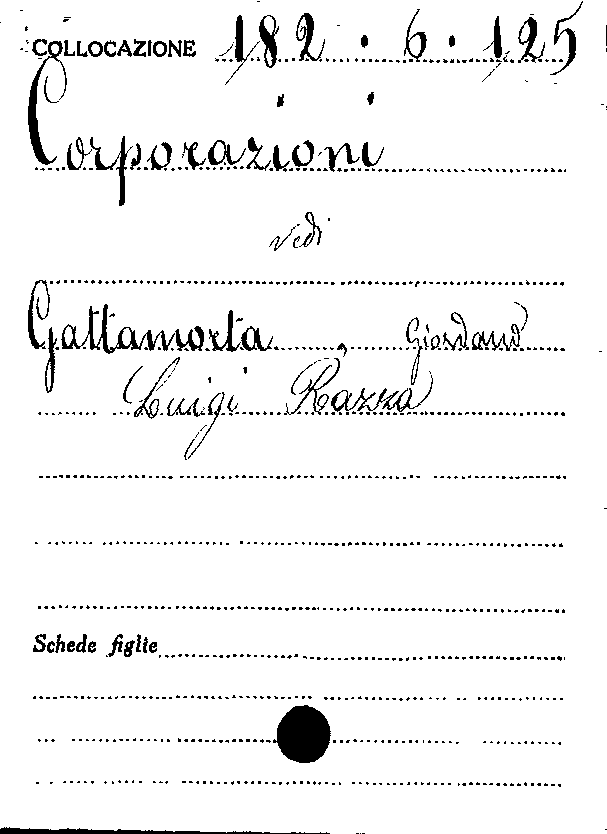 COLLOCAZIONE 182.6.125
Corporazioni
vedi
Gattamorta, Giordano
Luigi Razza
Schede figlie